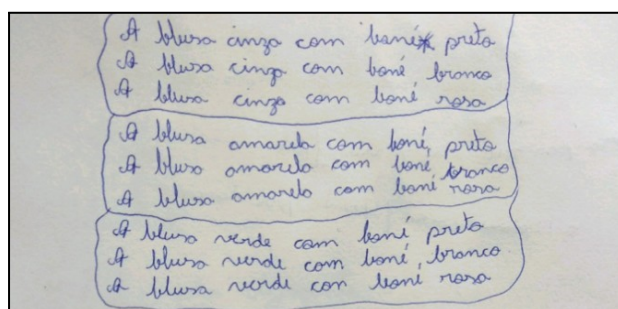 A blusa cinza com boné preto
A blusa cinza com boné branco
A blusa cinza com boné rosa
A blusa amarela com boné preto
A blusa amarela com boné branco
A blusa amarela com boné rosa
A blusa verde com boné preto
A blusa verde com boné branco
A blusa verde com boné rosa